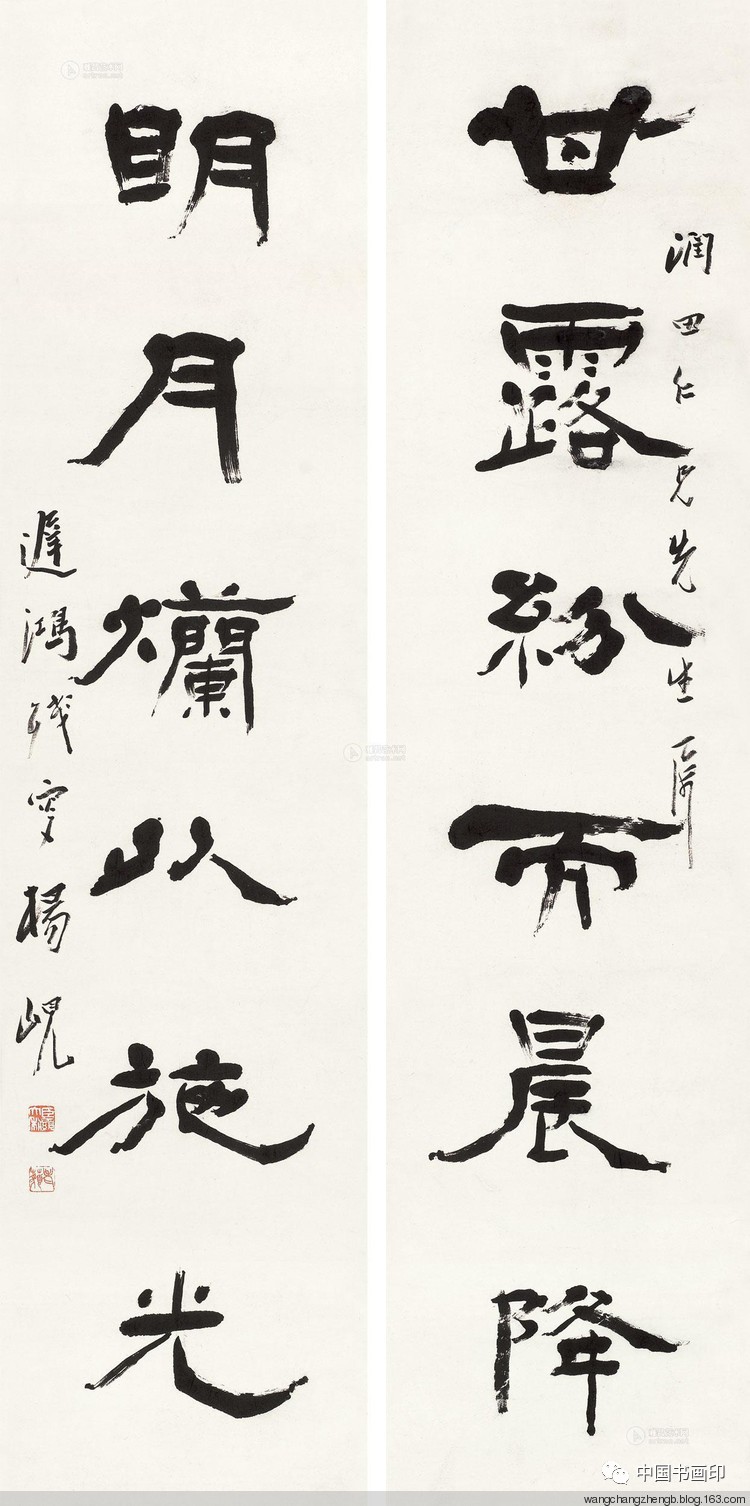 甘露紛而晨降
潤四仁兄先生属
明月爤以施光
遲鴻殘叟楊峴
中国书画印
wangchangzhengb.blog.163.com